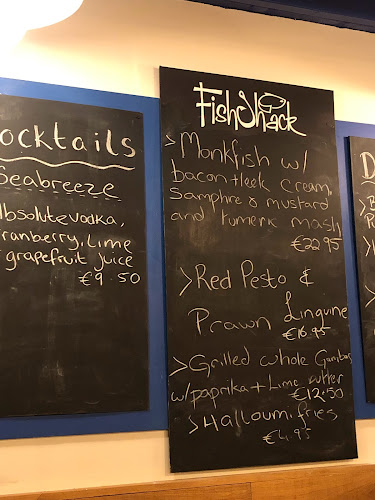 ocktails
Seabreeze
bsolute vodka,
ranberry, Lime
grapefruit juice
€9.50
FishShack
>Monkfish w/
bacon+leek cream,
Samphire & mustard
and tumeric mash
€22.95
>Red Pesto &
Prawn Linguine
€16.95
>Grilled whole Gambas
w/paprika+Lime butter
€12.50
>Halloumi fries
€4.95
D